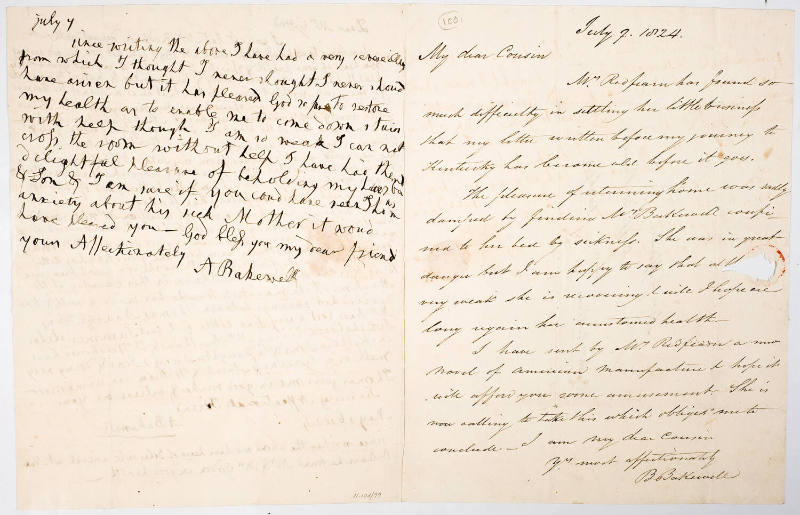 july 7
since writing the above I have had a very severe illness
from which I thought I never thought I never should
have arisen but it has pleased God so far to restore
my health as to enable me to come down stairs
with help though I am so weak I can not
cross the room without help I have has the
delightful pleasure of beholding my
& Son & I am sure if you coud have seen him
anxiety about his sick Mother it woud
have pleased you — God bless you my dear friend
yours Affectionately
A Bakewell
100
July 9. 1824.
My dear Cousin
Mrs Redfearn has found so
much difficulty in settling her little business
that my letter written before my journey to
Kentucky has become old before it goes.
The pleasure of returning home was sadly
damped by finding Mrs Bakewell confi
ned to her bed by sickness. She was in great
danger but I am happy to say that altho
very weak she is recovering & will I hope ere
long regain her accustomed health —
I have sent by Mrs Redfearn a new
novel of American manufacture & hope it
will afford you some amusement. She is
now calling to take this which obliges me to
conclude — I am my dear Cousin
Yrs most affectionately
B Bakewell